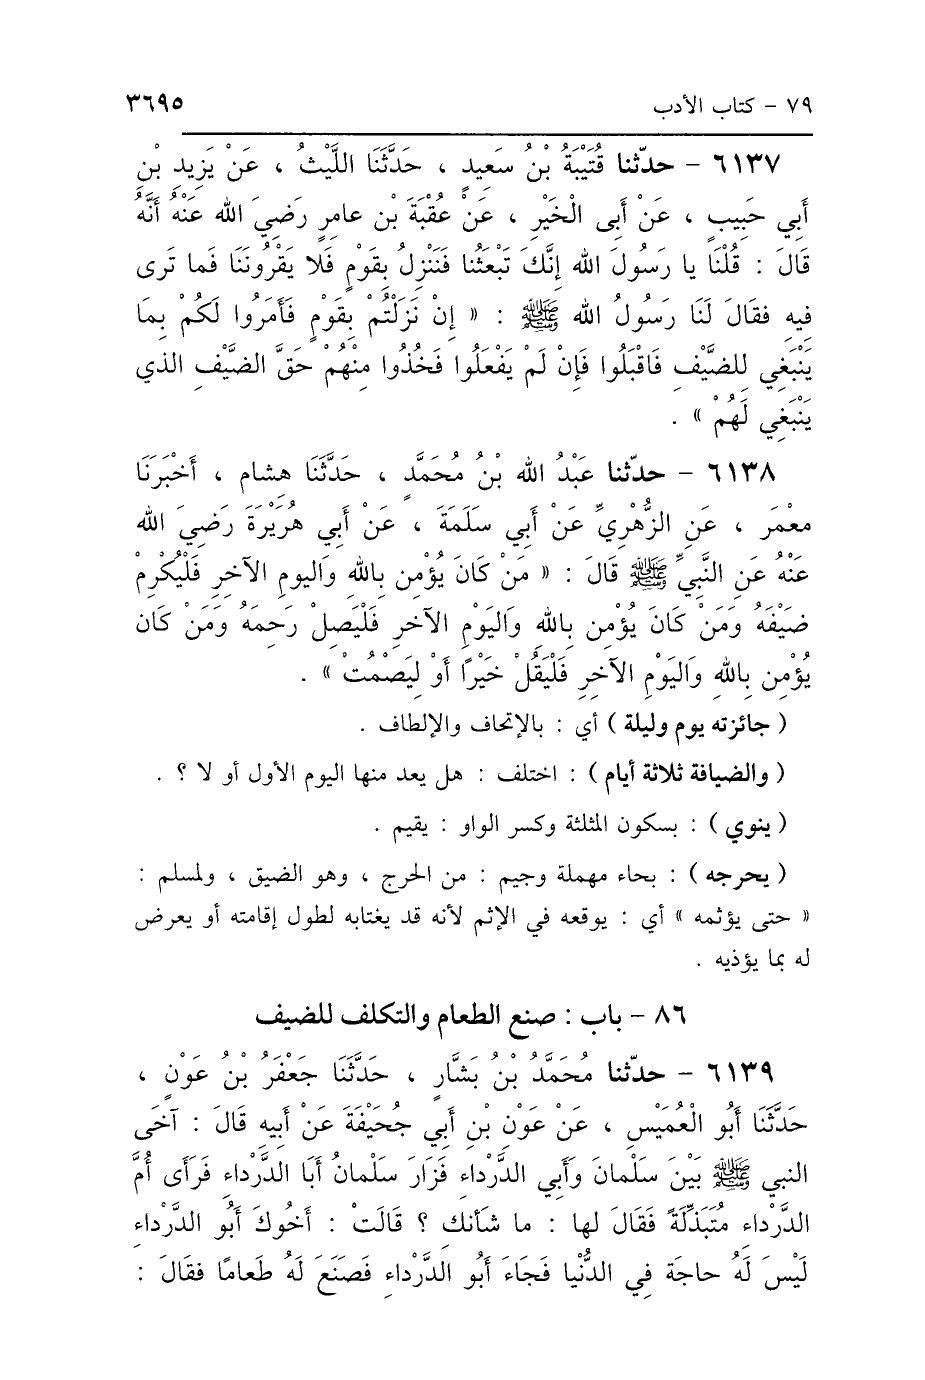 ٧٩ - كتاب الأدب ٣٦٩٥
٦١٣٧ - حدّثنا قُتَيْبَةُ بْنُ سَعِيدٍ ، حَدَّثَنَا اللَّيْثُ ، عَنْ يَزِيدِ بْنِ
أَبِي حَبِيبٍ ، عَنْ أَبِى الْخَيْرِ ، عَنْ عُقْبَةَ بْنِ عامِرٍ رَضِيَ الله عَنْهُ أَنَّهُ
قَالَ : قُلْنَا يا رَسُولَ الله إِنَّكَ تَبْعَثُنا فَنَنْزِلُ بِقَوْمٍ فَلا يَقْرُونَنَا فَما تَرى
فِيهِ فَقَالَ لَنَا رَسُولُ الله ﷺ : « إِنْ نَزَلْتُمْ بِقَوْمٍ فَأَمَرُوا لَكُمْ بِمَا
يَنْبَغِي لِلضَّيْفِ فَاقْبَلُوا فَإِنْ لَمْ يَفْعَلُوا فَخُذُوا مِنْهُمْ حَقَّ الضَّيْفِ الذي
يَنْبَغِي لَهُمْ » .
٦١٣٨ - حدّثنا عَبْدُ الله بْنُ مُحَمَّدٍ ، حَدَّثَنَا هشام ، أَخْبَرَنَا
معْمَر ، عَنِ الزُّهْرِيِّ عَنْ أَبِي سَلَمَةَ ، عَنْ أَبِي هُرَيْرَةَ رَضِيَ الله
عَنْهُ عَنِ النَّبِيِّ ﷺ قَالَ : « مَنْ كَانَ يُؤْمِن بِاللهِ وَاليومِ الآخِرِ فَلْيُكْرِمْ
ضَيْفَهُ وَمَنْ كَانَ يُؤْمِن بِاللهِ وَاليَوْمِ الآخرِ فَلْيَصِلْ رَحِمَهُ وَمَنْ كَان
يُؤْمِن بِاللهِ وَاليَوْمِ الآخِرِ فَلْيَقُلْ خَيْرًا أَوْ لِيَصْمُتْ » .
( جائزته يوم وليلة ) أي : بالإتحاف والإلطاف .
( والضيافة ثلاثة أيام ) : اختلف : هل يعد منها اليوم الأول أو لا ؟ .
( ينوي ) : بسكون المثلثة وكسر الواو : يقيم .
( يحرجه ) : بحاء مهملة وجيم : من الحرج ، وهو الضيق ، ولمسلم :
« حتى يؤثمه » أي : يوقعه في الإثم لأنه قد يغتابه لطول إقامته أو يعرض
له بما يؤذيه .
٨٦ - باب : صنع الطعام والتكلف للضيف
٦١٣٩ - حدّثنا مُحَمَّدُ بْنُ بَشَّارٍ ، حَدَّثَنَا جَعْفَرُ بْنُ عَوْنٍ ،
حَدَّثَنَا أَبُو الْعُمَيْسِ ، عَنْ عَوْنِ بْنِ أَبِي جُحَيْفَةَ عَنْ أَبِيهِ قَالَ : آخَى
النبي ﷺ بَيْنَ سَلْمانَ وَأَبِي الدَّرْداءِ فَزَارَ سَلْمانُ أَبَا الدَّرْداءِ فَرَأَى أُمَّ
الدَّرْداءِ مُتَبَذِّلَةً فَقَالَ لها : ما شَأنك ؟ قَالَتْ : أَخُوكَ أَبُو الدَّرْداءِ
لَيْسَ لَهُ حاجَة فِي الدُّنْيا فَجَاءَ أَبُو الدَّرْداءِ فَصَنَعَ لَهُ طَعامًا فقَالَ :